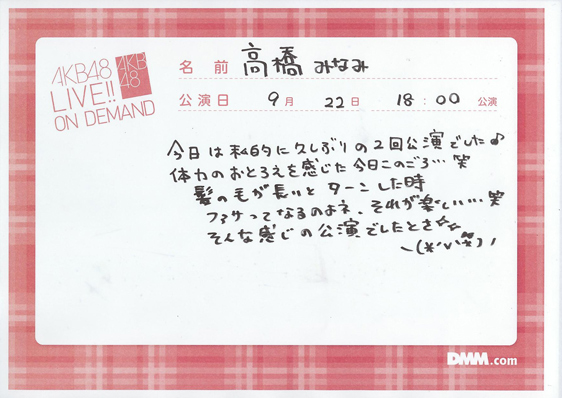 AKB48
LIVE!!
ON DEMAND
AKB
48
名前 高橋みなみ
公演日 9月 22日 18:00 公演
今日は私的に久しぶりの2回公演でした♪
体力のおとろえを感じた今日このごろ…笑
髪の毛が長いとターンした時
ファサってなるのよネ、それが楽しい…笑
そんな感じの公演でしたとさ☆☆
DMM.com